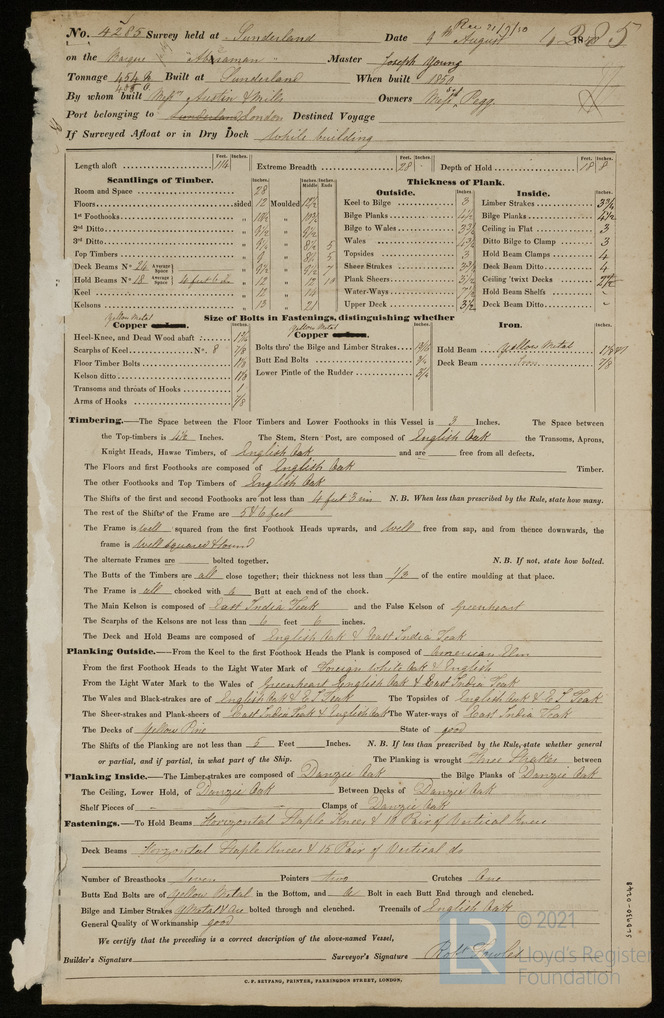 No. 4285 Survey held at Sunderland Date 9th August 18
on the Barque "Abraman" Master Joseph Young
Tonnage 454 Built at Sunderland When built 1850
By whom built Messrs Austin & Mills Owners Messrs Pegg
Port belonging to Sunderland London Destined Voyage
If Surveyed Afloat or in Dry Dock while building
Feet. Inches. Feet. Inches. Feet. Inches.
Length aloft 114 Extreme Breadth 28 - Depth of Hold 18 8
Scantlings of Timber.
Inches. Inches Middle Inches Ends
Room and Space 28
Floors sided 12 Moulded
1st Foothooks " "
2nd Ditto " "
3rd Ditto " " 5
Top Timbers " 9 " 5
Deck Beams No. 24 Average Space " " 7
Hold Beams No. 18 Average Space 4 feet 6 in " 12 " 12
Keel " 12 "
Kelsons " 13 " 21
Thickness of Plank.
Outside. Inches. Inside. Inches.
Keel to Bilge 3 Limber Strakes
Bilge Planks 4½ Bilge Planks 4½
Bilge to Wales 3½ Ceiling in Flat 3
Wales Ditto Bilge to Clamp 3
Topsides 3 Hold Beam Clamps 4
Sheer Strakes Deck Beam Ditto 4
Plank Sheers 3½ Ceiling 'twixt Decks 2½
Water-Ways Hold Beam Shelfs -
Upper Deck 3½ Deck Beam Ditto -
Size of Bolts in Fastenings, distinguishing whether
Yellow Metal
Copper Inches.
Heel-Knee, and Dead Wood abaft
Scarphs of Keel No. 8 7/8
Floor Timber Bolts
Kelson ditto
Transoms and throats of Hooks 1
Arms of Hooks 7/8
Yellow Metal
Copper Inches.
Bolts thro' the Bilge and Limber Strakes
Butt End Bolts
Lower Pintle of the Rudder
Iron. Inches.
Hold Beam Yellow Metal
Deck Beam Iron 7/8
Timbering.—The Space between the Floor Timbers and Lower Foothooks in this Vessel is 3 Inches. The Space between
the Top-timbers is 4½ Inches. The Stem, Stern Post, are composed of English Oak the Transoms, Aprons,
Knight Heads, Hawse Timbers, of English Oak and are free from all defects.
The Floors and first Foothooks are composed of English Oak Timber.
The other Foothooks and Top Timbers of English Oak
The Shifts of the first and second Foothooks are not less than 4 feet 3 in N.B. When less than prescribed by the Rule, state how many.
The rest of the Shifts of the Frame are 5 & 6 feet
The Frame is well squared from the first Foothook Heads upwards, and well free from sap, and from thence downwards, the
frame is well squared & sound
The alternate Frames are bolted together. N.B. If not, state how bolted.
The Butts of the Timbers are all close together; their thickness not less than 1/3 of the entire moulding at that place.
The Frame is all chocked with a Butt at each end of the chock.
The Main Kelson is composed of East India Teak and the False Kelson of Greenheart
The Scarphs of the Kelsons are not less than 6 feet 6 inches.
The Deck and Hold Beams are composed of English Oak & East India Teak
Planking Outside.—From the Keel to the first Foothook Heads the Plank is composed of American Elm
From the first Foothook Heads to the Light Water Mark of Foreign White Oak & English
From the Light Water Mark to the Wales of Greenheart English Oak & East India Teak
The Wales and Black-strakes are of English Oak & E.I. Teak The Topsides of English Oak & E.I. Teak
The Sheer-strakes and Plank-sheers of East India Teak & English Oak The Water-ways of East India Teak
The Decks of Yellow Pine State of good
The Shifts of the Planking are not less than 5 Feet Inches. N.B. If less than prescribed by the Rule, state whether general
or partial, and if partial, in what part of the Ship. The Planking is wrought Three Strakes between
Planking Inside.—The Limber-strakes are composed of Danzic Oak the Bilge Planks of Danzic Oak
The Ceiling, Lower Hold, of Danzic Oak Between Decks of Danzic Oak
Shelf Pieces of - Clamps of Danzic Oak
Fastenings.—To Hold Beams Horizontal Staple Knees & 16 Pair of Vertical Knees
Deck Beams Horizontal Staple Knees & 15 Pair of Vertical do
Number of Breasthooks Seven Pointers Two Crutches One
Butts End Bolts are of Yellow Metal in the Bottom, and a Bolt in each Butt End through and clenched.
Bilge and Limber Strakes Y Metal & are bolted through and clenched. Treenails of English Oak
General Quality of Workmanship good
We certify that the preceding is a correct description of the above-named Vessel,
Builder's Signature Surveyor's Signature Robt Fowles
C. F. SEYFANG, PRINTER, FARRINGDON STREET, LONDON.
LR © 2021
Lloyd's Register
Foundation
SLD930-0248